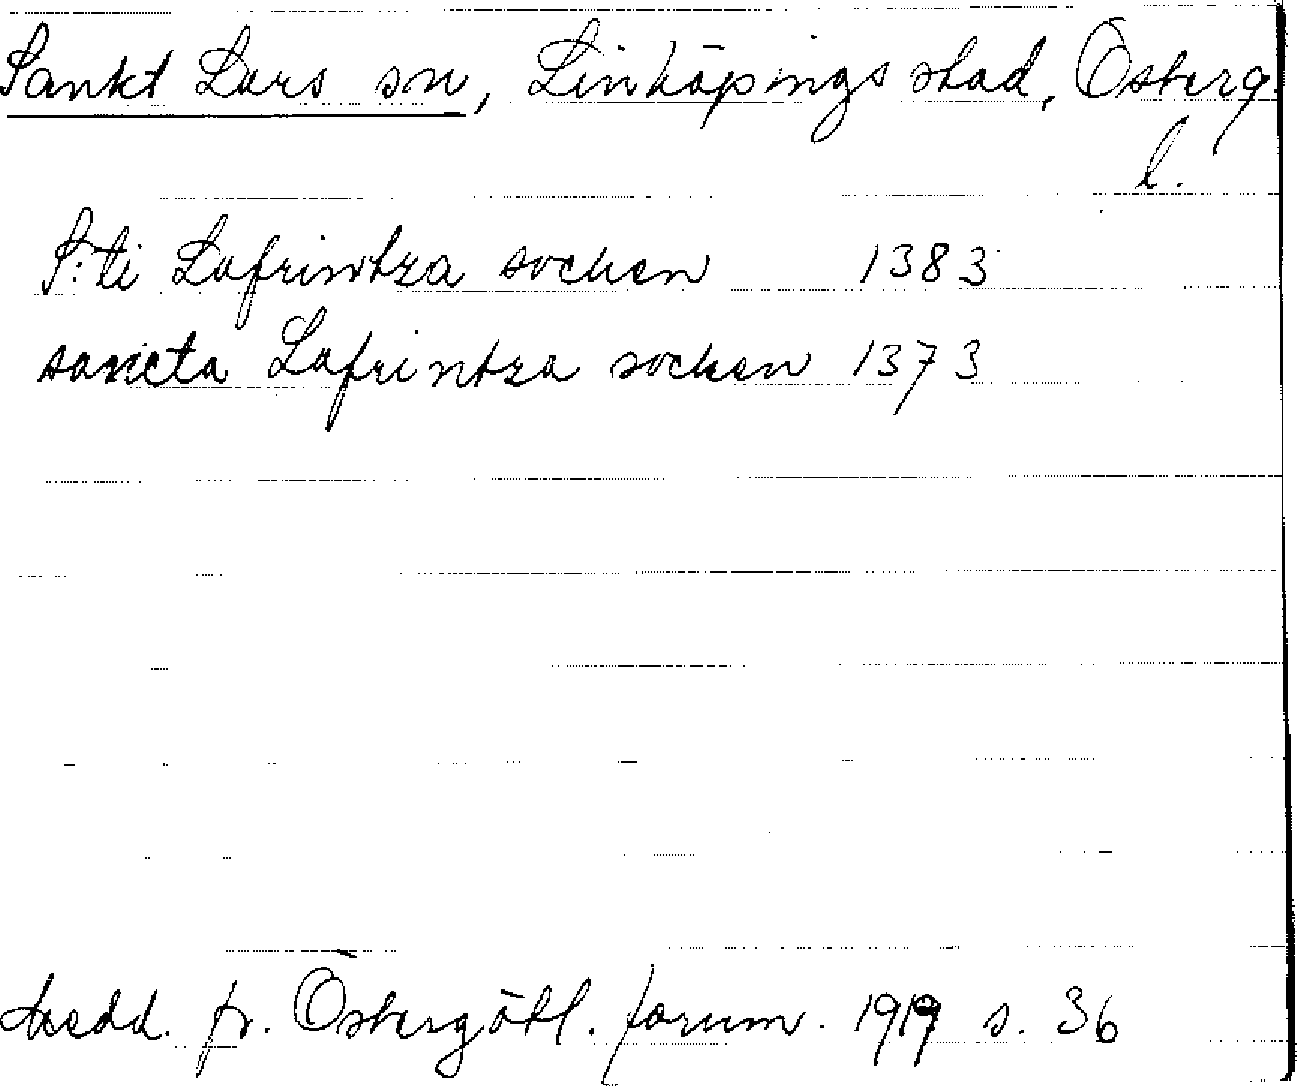 Sankt Lars sn, Linköpings stad, Österg.
l.
S:ti Lafrintza socken 1383
sancta Lafrintza socken 1373
Medd. fr. Östergötl. fornm. 1919 s. 36